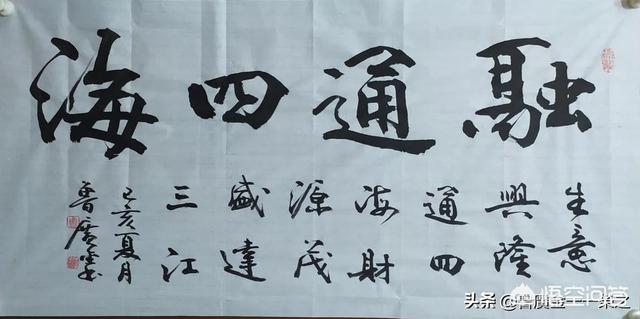 融通四海
生意
興隆
通四
海財
源茂
盛達
三江
己亥夏月
廣
悟空问答
头条